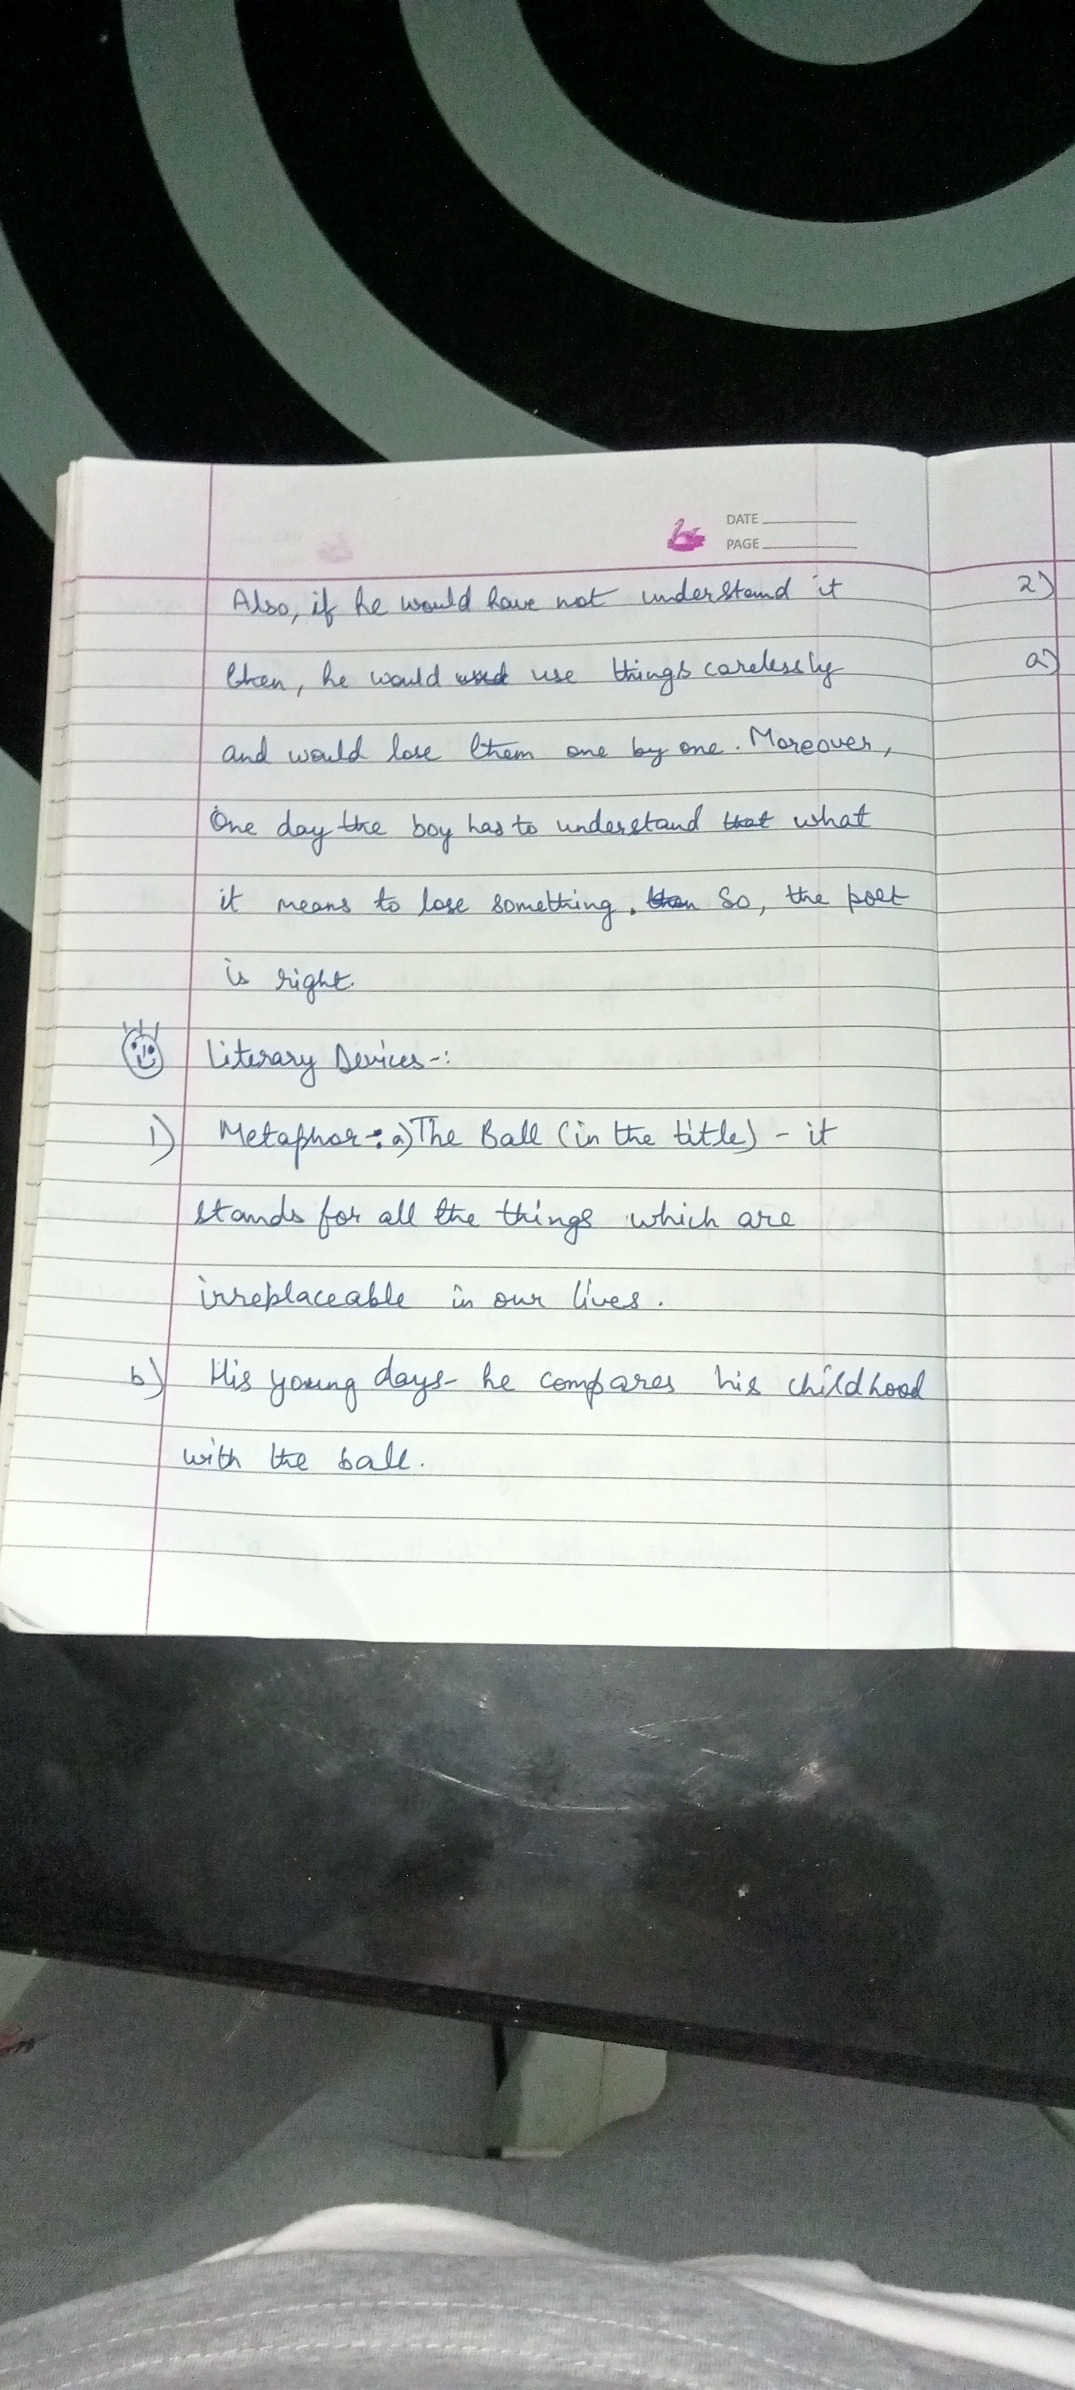 DATE
PAGE
Also, if he would have not understand it
then, he would used use things carelessly
and would lose them one by one. Moreover,
One day the boy has to understand that what
it means to lose something. then So, the poet
is right.
Literary Devices-:
1) Metaphor-: a) The Ball (in the title) - it
stands for all the things which are
irreplaceable in our lives.
b) His young days- he compares his childhood
with the ball.
2)
a)